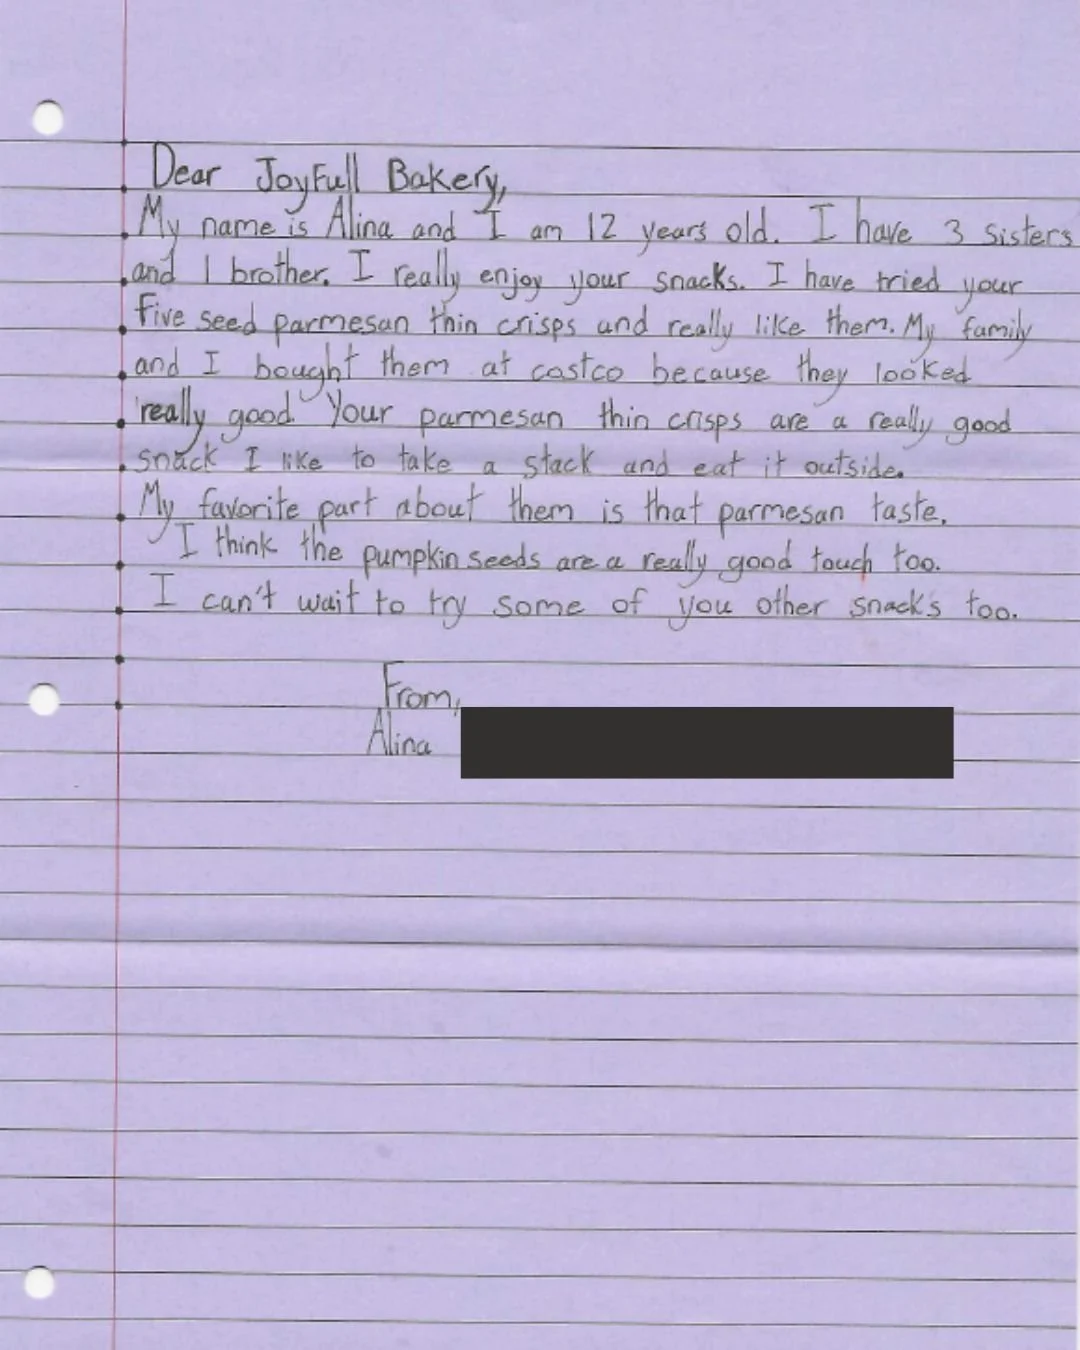 Dear JoyFull Bakery,
My name is Alina and I am 12 years old. I have 3 sisters
and 1 brother. I really enjoy your snacks. I have tried your
Five seed parmesan thin crisps and really like them. My family
and I bought them at costco because they looked
really good. Your parmesan thin crisps are a really good
snack I like to take a stack and eat it outside.
My favorite part about them is that parmesan taste.
I think the pumpkin seeds are a really good touch too.
I can't wait to try some of you other snacks too.
From,
Alina